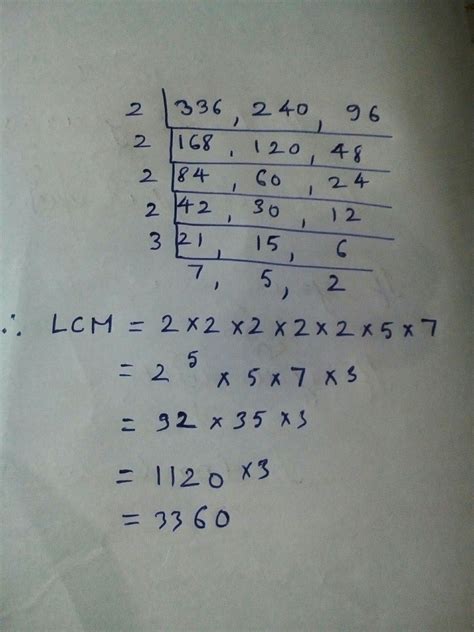 2 | 336, 240, 96
2 | 168, 120, 48
2 | 84, 60, 24
2 | 42, 30, 12
3 | 21, 15, 6
7, 5, 2
∴ LCM = 2×2×2×2×2×5×7
= 2⁵ × 5×7 ×3
= 32 × 35 ×3
= 1120 ×3
= 3360